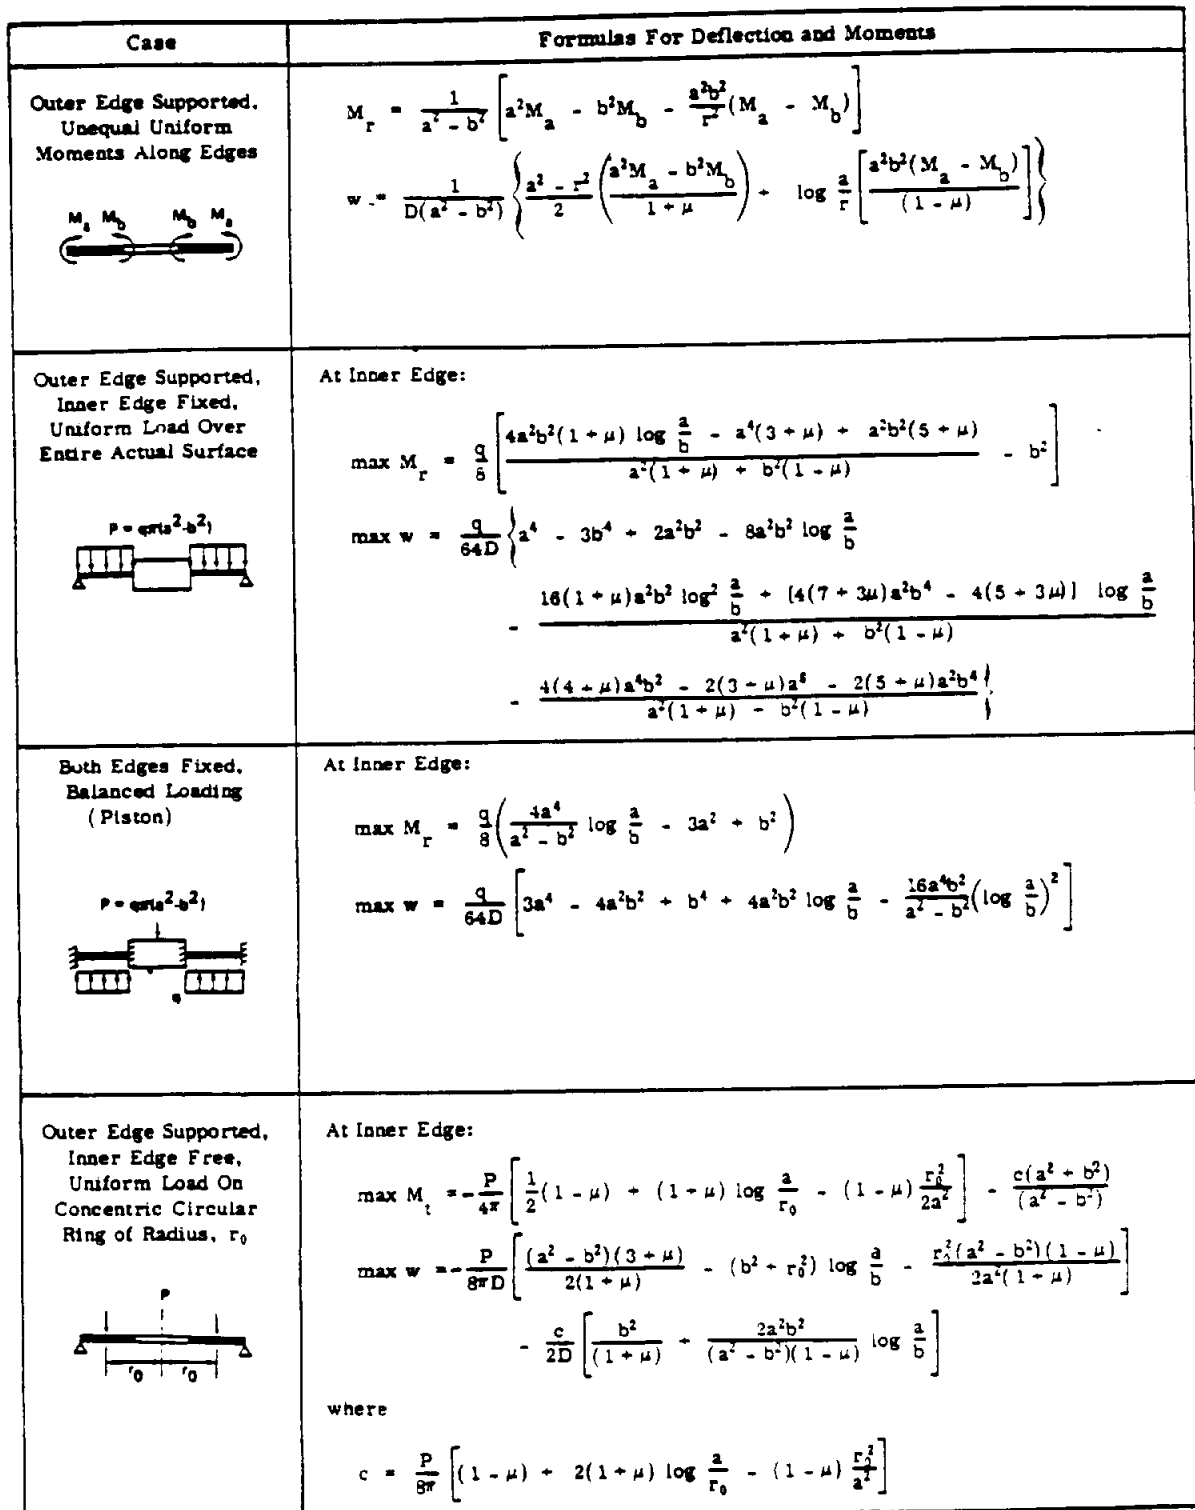 Case
Formulas For Deflection and Moments
Outer Edge Supported,
Unequal Uniform
Moments Along Edges
M_a M_b M_b M_a
M_r = 1/(a² - b²) [a²M_a - b²M_b - a²b²/r² (M_a - M_b)]
w = 1/(D(a² - b²)) { (a² - r²)/2 ((a²M_a - b²M_b)/(1 + μ)) + log a/r [a²b²(M_a - M_b)/(1 - μ)] }
Outer Edge Supported,
Inner Edge Fixed,
Uniform Load Over
Entire Actual Surface
P = qπ(a²-b²)
At Inner Edge:
max M_r = q/8 [(4a²b²(1 + μ) log a/b - a⁴(3 + μ) + a²b²(5 + μ))/(a²(1 + μ) + b²(1 - μ)) - b²]
max w = q/64D { a⁴ - 3b⁴ + 2a²b² - 8a²b² log a/b
- (16(1 + μ)a²b² log² a/b + [4(7 + 3μ)a²b⁴ - 4(5 + 3μ)] log a/b)/(a²(1 + μ) + b²(1 - μ))
- (4(4 + μ)a⁴b² - 2(3 + μ)a⁶ - 2(5 + μ)a²b⁴)/(a²(1 + μ) - b²(1 - μ)) }
Both Edges Fixed,
Balanced Loading
(Piston)
P = qπ(a²-b²)
q
At Inner Edge:
max M_r = q/8 (4a⁴/(a² - b²) log a/b - 3a² + b²)
max w = q/64D [3a⁴ - 4a²b² + b⁴ + 4a²b² log a/b - 16a⁴b²/(a² - b²) (log a/b)²]
Outer Edge Supported,
Inner Edge Free,
Uniform Load On
Concentric Circular
Ring of Radius, r₀
P
r₀ r₀
At Inner Edge:
max M_t = -P/4π [1/2 (1 - μ) + (1 + μ) log a/r₀ - (1 - μ) r₀²/2a²] - c(a² + b²)/(a² - b²)
max w = -P/8πD [(a² - b²)(3 + μ)/2(1 + μ) - (b² + r₀²) log a/b - r₀²(a² - b²)(1 - μ)/2a²(1 + μ)]
- c/2D [b²/(1 + μ) + 2a²b²/((a² - b²)(1 - μ)) log a/b]
where
c = P/8π [(1 - μ) + 2(1 + μ) log a/r₀ - (1 - μ) r₀²/a²]